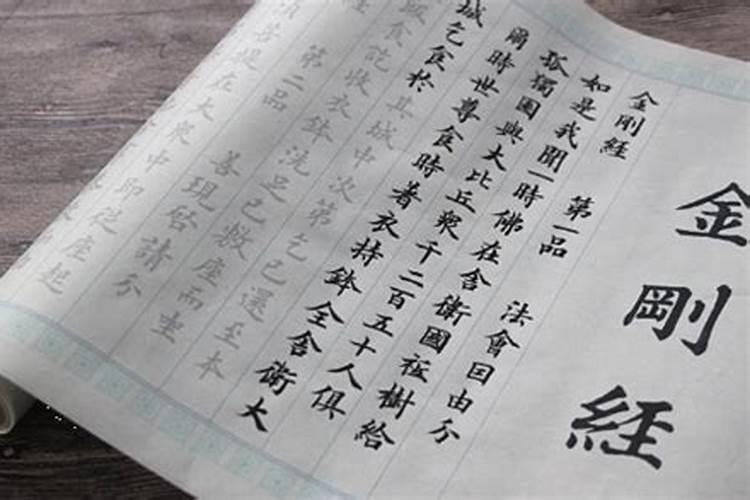 金剛經
金剛經 第一品 法會因由分
如是我聞一時佛在舍衛國祇樹給
孤獨園與大比丘眾千二百五十人俱
爾時世尊食時著衣持鉢全舍衛大
城乞食於其城中次第乞已還至本
飯食訖收衣鉢洗足已敷座而坐
第二品 善現啟請分
菩提在大眾中即從座起